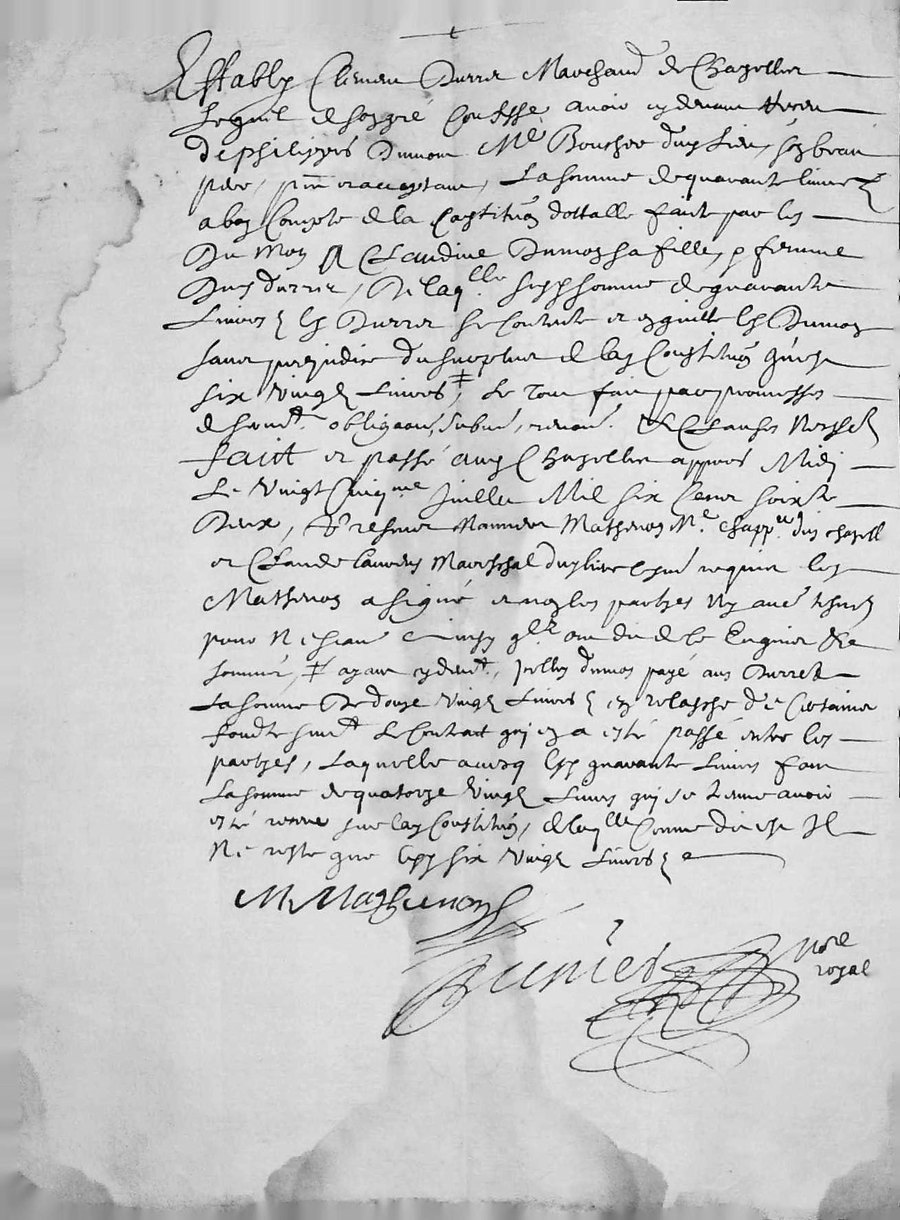 Estably Clement Durret Marchand de Chazelles
Lequel de son gré Confesse avoir cydevant Receu
de philippes Dumon Me Boucher dud Lieu, son beau
pere, pnt et acceptant, La somme de quarante livres
a bon Compte de la Constituon dottalle faite par led
Du Mon A Claudine Dumon sa fille, & femme
Dud durret, De laqlle susd somme de quarante
Livres led Durret se Contente et en quitte led Dumon
sans prejudice du surplus de lad Constituon qui est
six vingt Livres ‡, Le tout fait par promesses
de serment obligaons, submi, renon. & Clauses Ness
faict et passé aud Chazelles appres Midi
Le Vingt Cinqme Juillet Mil six Cent soixte
Deux, & presence Mathevon Me Chapp. dud chazell
et Claude Mareschal dud lieu requis led
Mathevon a signé et non les parties ny
pour Ne scavoir de Ce Enquis &
sommés, ‡ ayant cydevt. led dumon payé aud Durret
La somme De douze Vingt Livres en relasche d'un Certain
fond Le Contrat qui en a esté passé entre les
parties, Laquelle avecq lesd quarante Livres font
La somme de quatorze Vingt Livres qui se treuve avoir
esté receue sur lad Constituon, de laqlle Comme dit est Il
Ne reste que lesd six Vingt Livres
M Mathevon
nore
royal